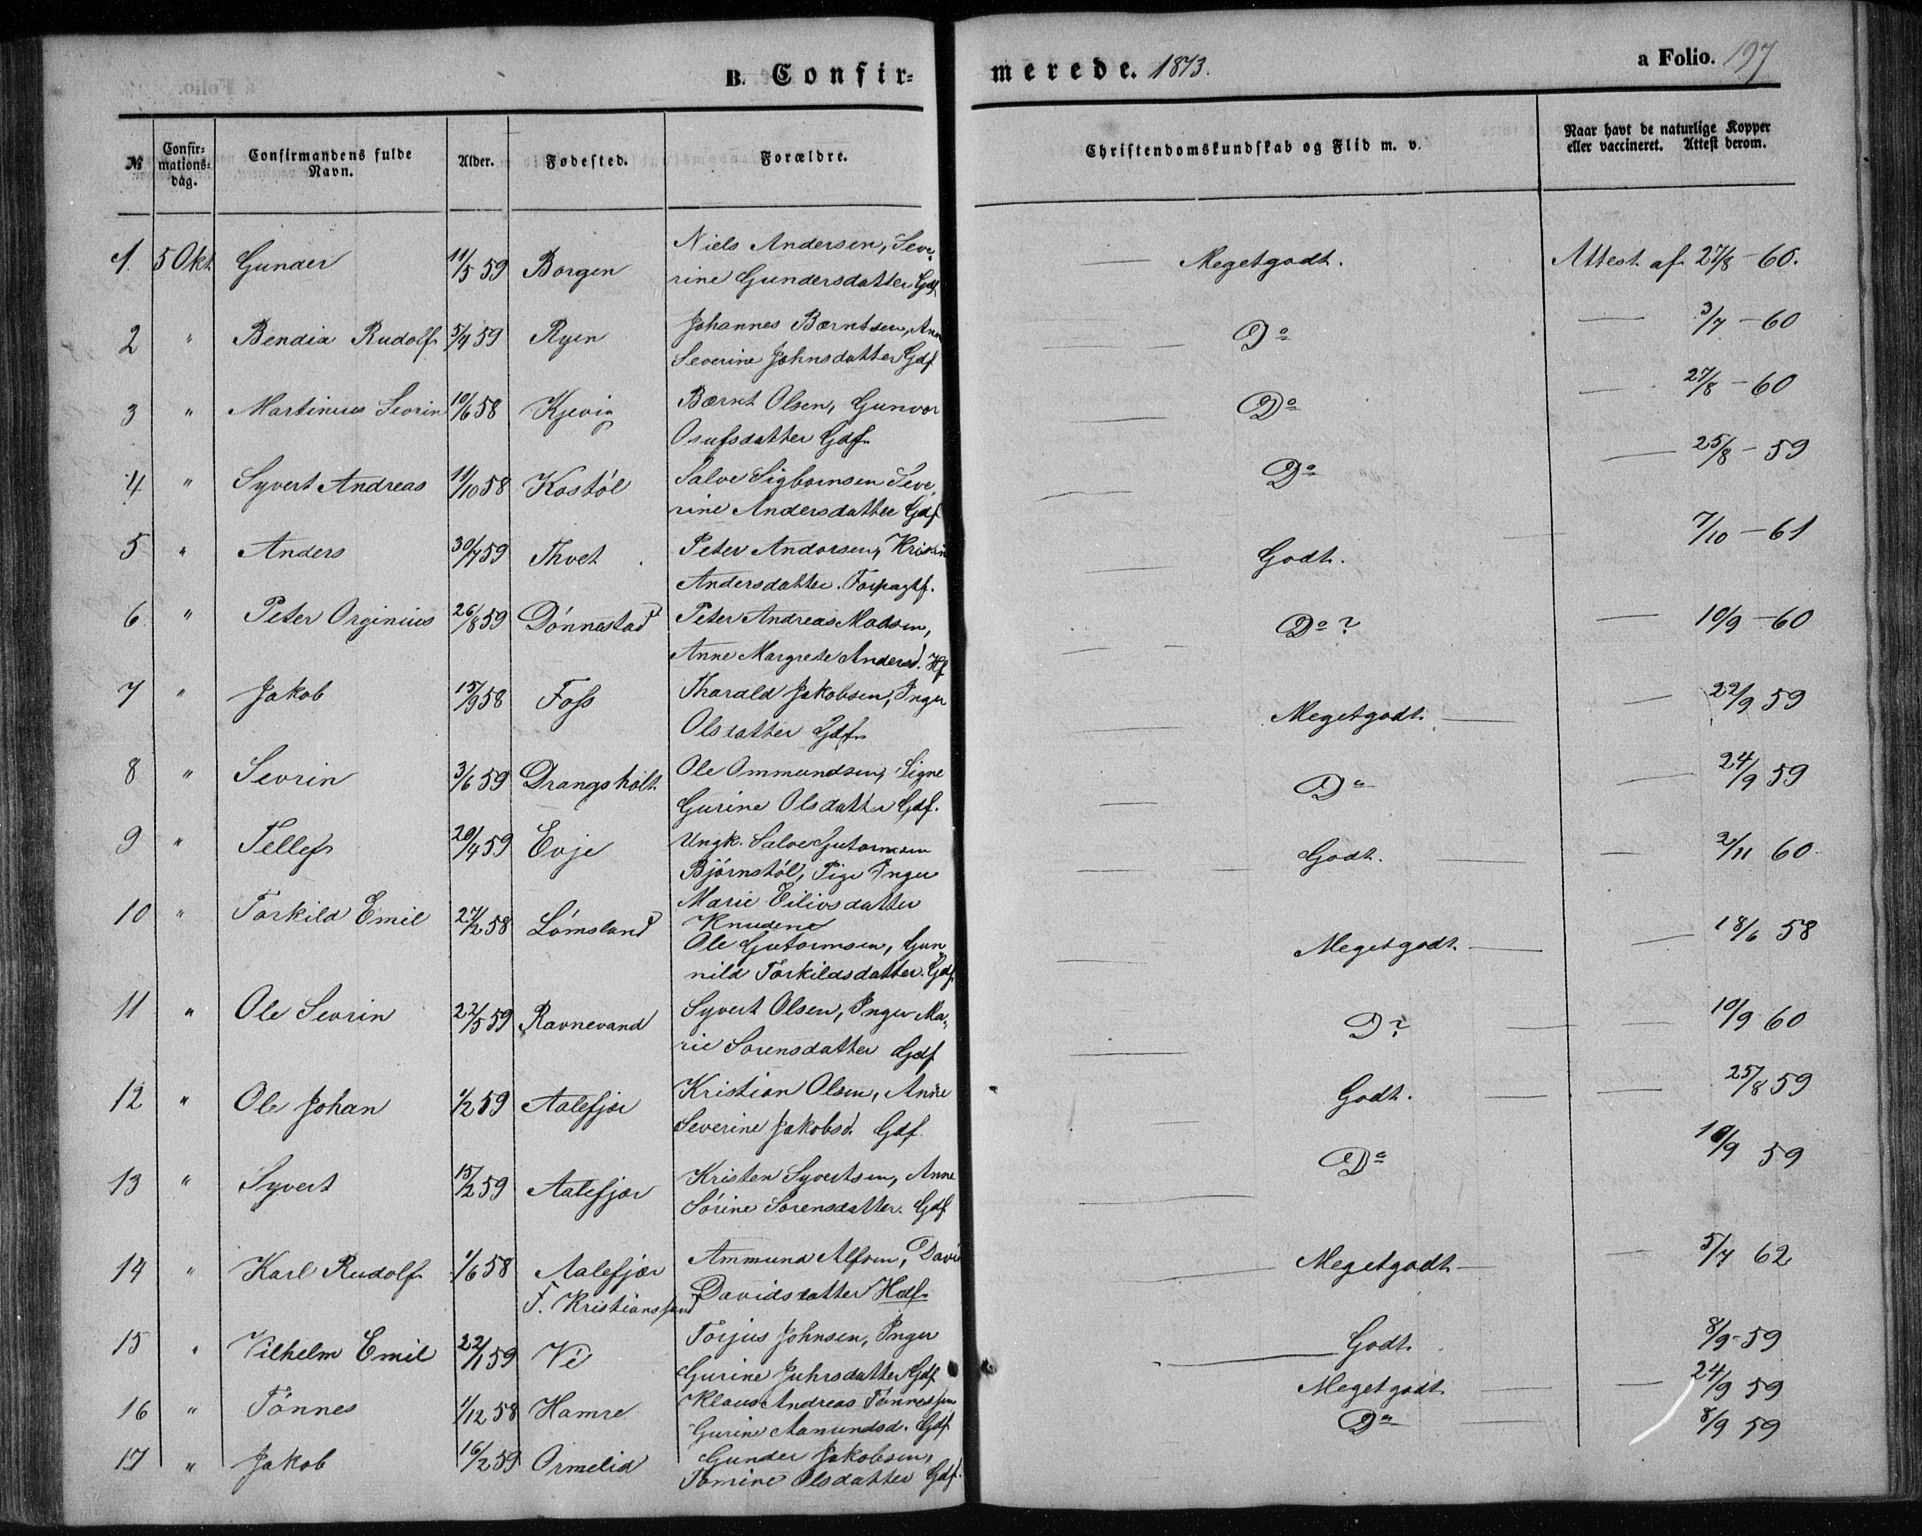 B. Confir-
merede. 1873.
a Folio. 197
№
Confir-
mations-
dag.
Confirmandens fulde
Navn.
Alder.
Fødested.
Forældre.
Christendomskundskab og Flid m. v.
Naar havt de naturlige Kopper
eller vaccineret. Attest derom.
1. 5 Okt Gunder 11/5 59 Borgen Niels Andersen, Seve-
rine Gundersdatter Gdf Megetgodt. Attest af 27/8 - 60.
2 " Bendix Rudolf 5/4 59 Ryen Johannes Bærntsen, Anne
Severine Johnsdatter Gdf Do 3/7 - 60
3 " Martinius Sevrin 10/6 58 Kjevig Bærnt Olsen, Gunvor
Osufsdatter Gdf. Do 27/8 - 60
4 " Syvert Andreas 11/10 58 Kostøl Salve Sigbornsen Seve-
rine Andersdatter Gdf Do 25/8 - 59
5 " Anders 30/7 59 Thvet Peter Andorsen, Kristin
Andersdatter. Forpagtf. Godt. 7/10 - 61
6 " Peter Orginius 26/8 59 Dønnestad Peter Andreas Madsen,
Anne Margrete Andersd. Hf Do ? 10/9 - 60
7 " Jakob 15/9 58 Foss Tharald Jakobsen, Inger
Olsdatter Gdf. Megetgodt. 22/9 59
8 " Sevrin 3/6 59 Drangsholt Ole Ommundsen, Signe
Gurine Olsdatter Gdf. Do 24/9 59
9 " Tellef 20/4 59 Evje Ungk. Salve Gutormsen
Bjørnstøl, Pige Inger
Marie Eilivsdatter
Knudene Godt. 2/11 60
10 " Torkild Emil 27/2 58 Lømsland Ole Gutormsen, Gun
nild Torkildsdatter. Gdf Megetgodt. 18/6 58
11 " Ole Sevrin 22/5 59 Ravnevand Syvert Olsen, Inger Ma-
rie Sorensdatter Gdf Do 10/9 60
12 " Ole Johan 1/2 59 Aalefjær Kristian Olsen, Anne
Severine Jakobsd. Gdf. Godt. 25/8 59
13 " Syvert 15/2 59 Aalefjær Kristen Syvertsen, Anne
Sørine Sorensdatter. Gdf Do 10/9 59
14 " Karl Rudolf 1/6 58 Aalefjær Ammund Alfsen, Davi
F. Kristianssand Davidsdatter Hdf. Megetgodt 5/7 62
15 " Vilhelm Emil 22/1 59 Ve Torjus Johnsen, Inger
Gurine Juhrsdatter Gdf Godt. 8/9 - 59
16 " Tønnes 1/12 58 Hamre Klaus Andreas Tønnessen
Gurine Aamundsd. Gdf. Megetgodt 24/9 59
17 " Jakob 16/2 59 Ormelid Gunder Jakobsen,
Tomine Olsdatter Gdf. Do 8/9 59